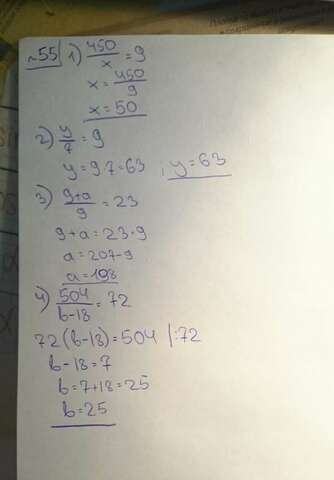 №55 1) 450/x = 9
x = 450/9
x = 50
2) y/7 = 9
y = 9·7 = 63 ; y = 63
3) 9+a/9 = 23
9+a = 23·9
a = 207-9
a = 198
4) 504/b-18 = 72
72(b-18) = 504 |:72
b-18 = 7
b = 7+18 = 25
b = 25